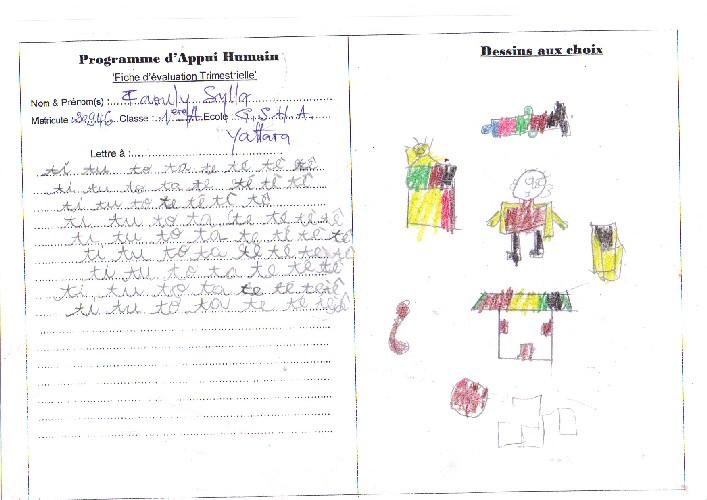 Programme d'Appui Humain
'Fiche d'évaluation Trimestrielle'
Nom & Prénom(s) : Faouly Sylla
Matricule 30946 Classe : 1ère A Ecole G.S.H.A.
Yattara
Lettre à :
ti tu to ta te tê tê
ti tu to ta te tê tê tê
ti tu to te te tê to
ti tu to ta te te tê tê
ti tu to ta te te tê tê
ti tu to ta te tê tê
ti tu to ta te tê tê
ti tu to ta te te tê
ti tu to ta te tê tê
Dessins aux choix